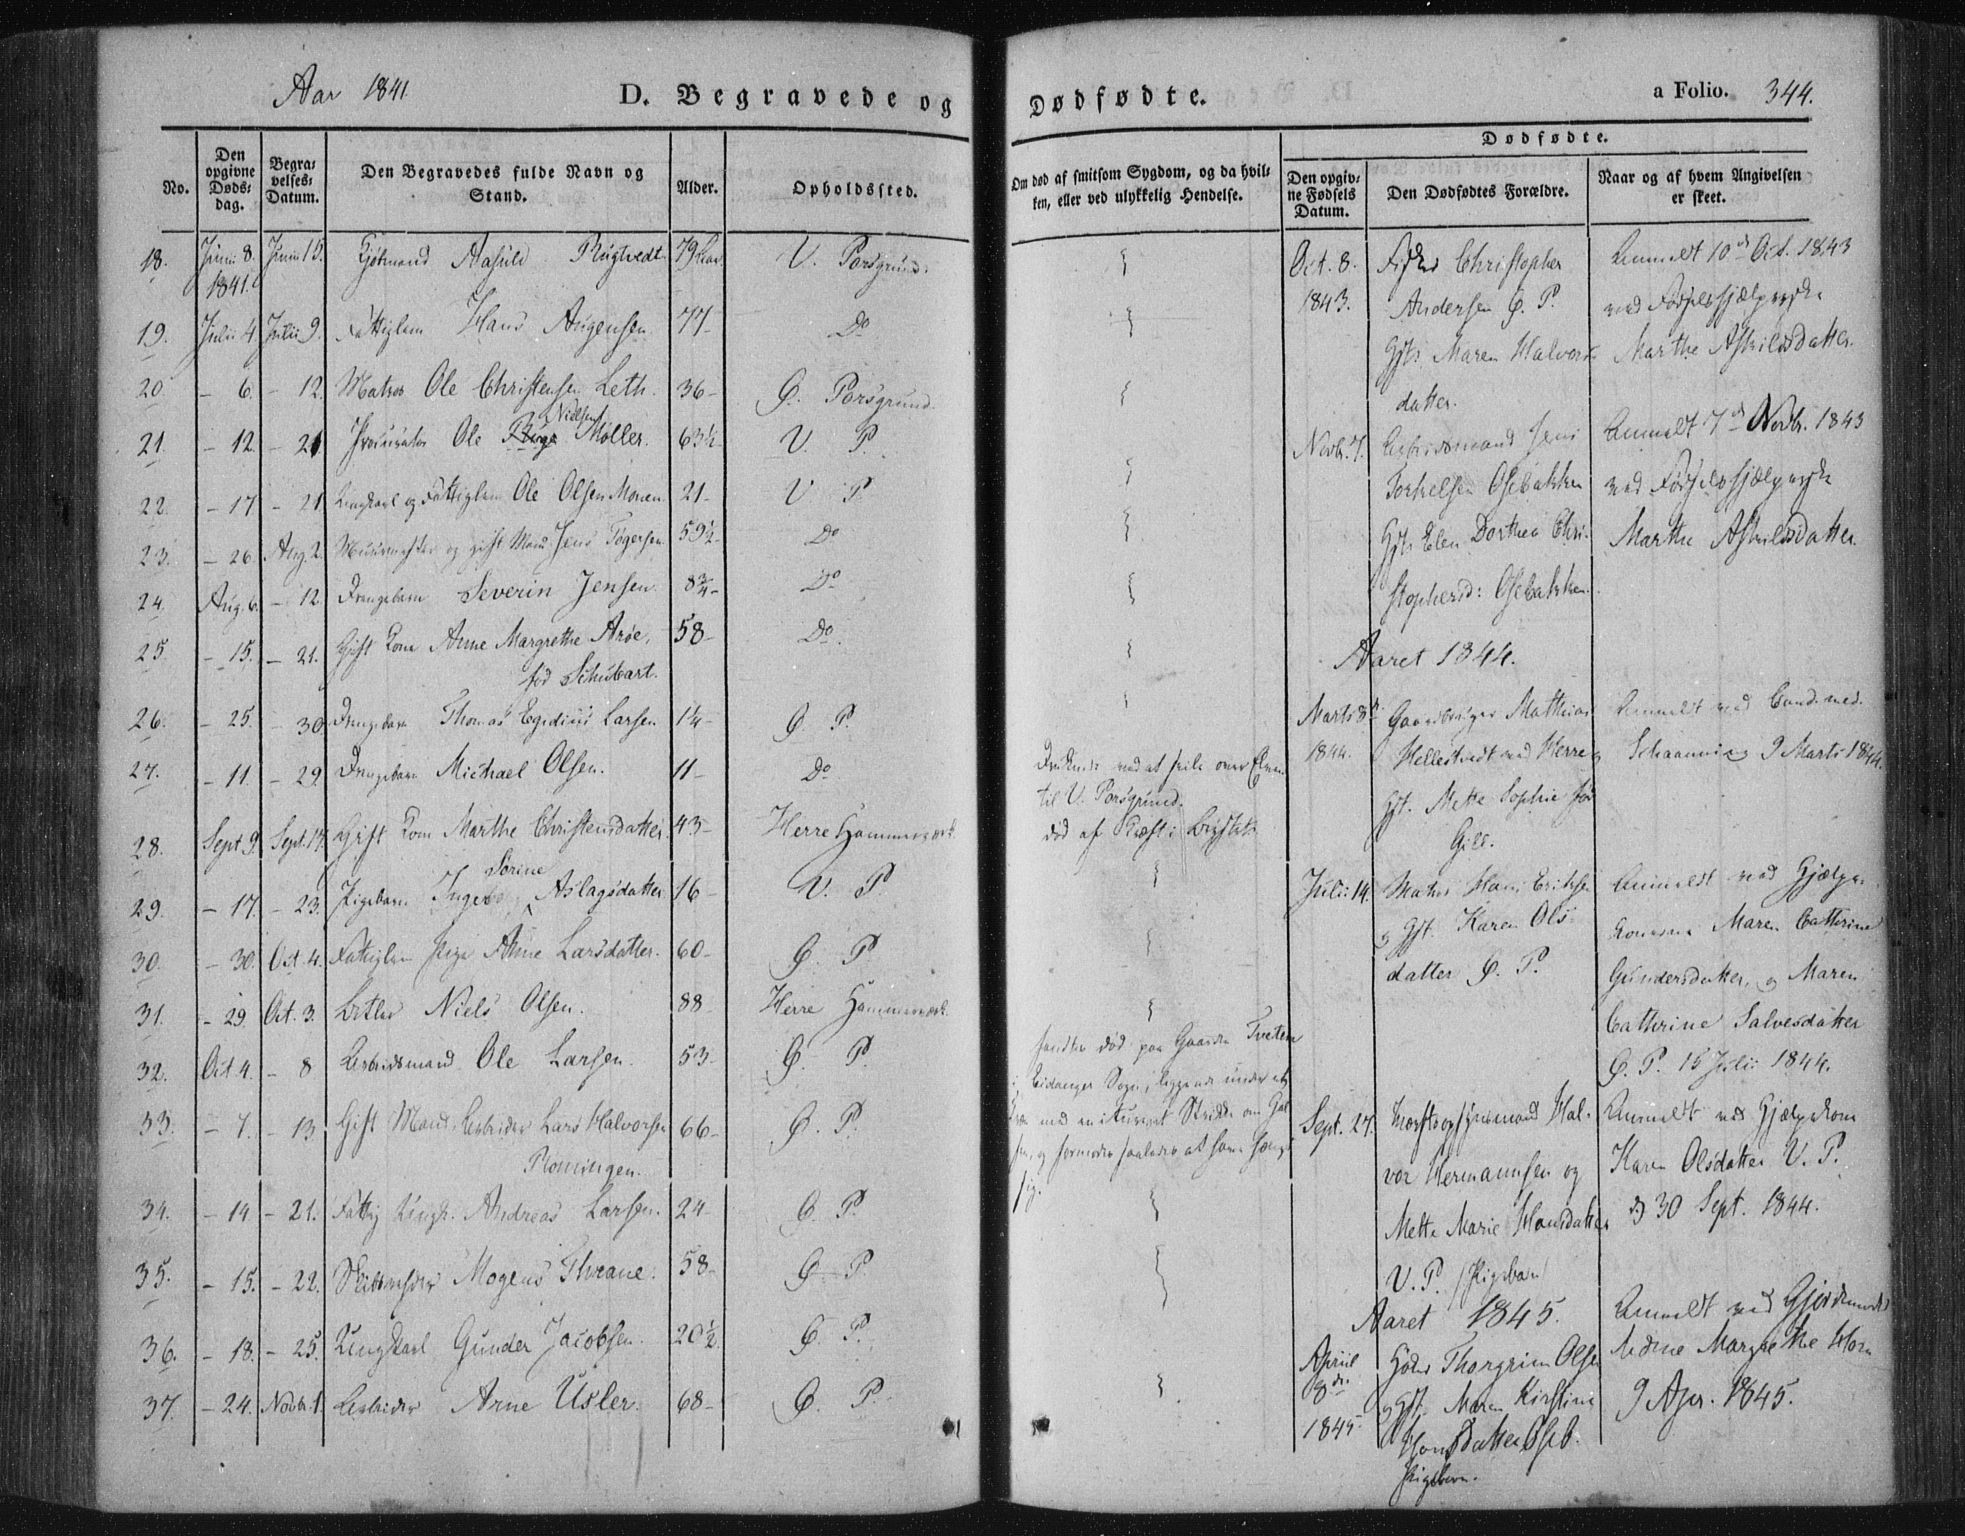 Aar 1841
D. Begravede og
No.
Den opgivne Døds-dag.
Begra-velses-Datum.
Den Begravedes fulde Navn og Stand.
Alder.
Opholdssted.
18. Juni 8. 1841. Juni 15. Aasuld Rugtvedt 79 V. Porsgrund.
19. Julii 4. Julii 9. Fattiglem Hans Aügensen 77- Do
20. - 6. - 12. Matros Ole Christensen Leth. 36- Ø. Porsgrund.
21. - 12. - 21 Procurator Ole Nielsen Møller. 63½ V. P.
22. - 17 - 21 Ungkarl og Fattiglem Ole Olsen Monen 21- V P.
23. - 26. Aug. 2. Muurmester og gift Mand Jens Tøgersen 59½- Do
24. Aug. 6. - 12. Drengebarn Severin Jensen. 8¾- Do
25 - 15. - 21. Gift Kone Anne Margrethe Arøe, 58- Do.
fød Schubart.
26. - 25. - 30. Drengebarn Thomas Egidius Larsen 1¼- Ø. P.
27. - 11 - 29. Drengebarn Michael Olsen. 11- Do
28. Sept. 9. Sept. 17. Gift Kone Marthe Christensdatter 43- Herre Hammerværk
Sørine
29. - 17. - 23. Pigebarn Aslagsdatter 16- V. P
30. - 30. Oct. 4. Fattiglem Pige Anne Larsdatter. 60- Ø. P
31. - 29. Oct. 3. Betler Niels Olsen. 88- Herre Hammerværk.
32. Oct 4. - 8 Arbeidsmand Ole Larsen. 53- Ø. P.
33. - 7. - 13 Gift Mand, Arbeider Lars Halvorsen 66- Ø. P.
34. - 14 - 21. Fattig Ungk. Andreas Larsen. 24- Ø. P.
35. - 15. - 22. Mogens Thrane. 58- Ø. P
36. - 18. - 25. Ungkarl Gunder Jacobsen. 20½ Ø. P.
37. - 24. Novbr. 1. Arbeider Arne Usler. 68- Ø. P.
Dødfødte.
a Folio. 344.
Om død af smitsom Sygdom, og da hvil-
ken, eller ved ulykkelig Hendelse.
Dødfødte.
Den opgiv-ne Fødsels Datum.
Den Dødfødtes Forældre.
Naar og af hvem Angivelsen er skeet.
Druknede ved at seile over Elven
til V. Porsgrund.
død af Kræft i Brystet.
funden død paa Gaarden Tveten
i Eidanger Sogn, liggende under et
Træ med en Strikke om Hal-
sen, og formodes saaledes at have hængt
sig.
Oct. 8. 1843.
Fisker Christopher
Andersen Ø. P.
Maren Halvors-
datter.
Anmeldt 10de Oct. 1843
ved Fødselshjælperske
Marthe Askildsdatter.
Novbr. 7.
Arbeidsmand Jens
Torkelsen Osebakken
Elen Dorthea Chri-
stophersd: Osebakken.
Anmeldt 7de Novbr. 1843
ved Fødselshjælperske
Marthe Askildsdatter.
Aaret 1844.
Marts 8de 1844.
Gaardbruger Mathias
Hellestvedt ved Herre og
Gst. Mette Sophie
Gill.
Anmeldt ved Cand. med.
Schaanning 9 Marts 1844.
Julii 14.
Matros Hans Eriksen
og Gst. Karen Ols-
datter Ø. P.
Anmeldt ved Hjælpe-
konerne Maren Cathrine
Gundersdatter, og Maren
Cathrine Salvesdatter
Ø. P. 15 Julii 1844.
Sept. 27.
Hal-
vor Hermannsen og
Mette Marie Hansdatter
V. P. /Pigebarn/
Anmeldt ved Hjælpekone
Karen Olsdatter V. P.
30 Sept. 1844.
Aaret 1845.
April 8de 1845.
Thorgrim Olsen
og Gst. Maren Kirstine
Hansdatter Oseb.
Pigebarn.
Anmeldt ved Gjordemoder
Margrethe Horn
9 Apr. 1845.